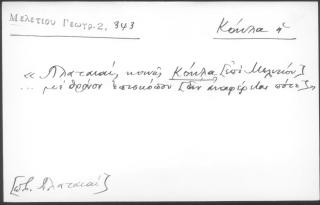 Μελετίου Γεωγρ. 2, 343
Κόκλα ἡ
« Πλαταιαί, κοινῶς Κόκλα [ἐπὶ Μελετίου]
... μὲ θρόνον ἐπισκόπου [δὲν ἀναφέρεται πότε]»
[πβ. Πλαταιαί]